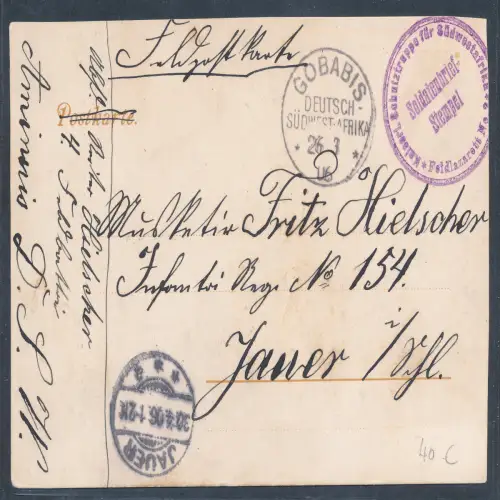 Feldpostkarte
Postkarte.
GOBABIS
DEUTSCH-
SÜDWEST-AFRIKA
26.3
06
Kaiserl. Schutztruppe für Südwestafrika
Soldatenbrief-
Stempel
Feldlazarett
Musketir Fritz Hielscher
Infantri Reg. No 154.
Jauer i/Schl.
Hielscher
4. Feldbatterie
Aminuis D. S. W.
JAUER
30.4.06.1-2N
40 €